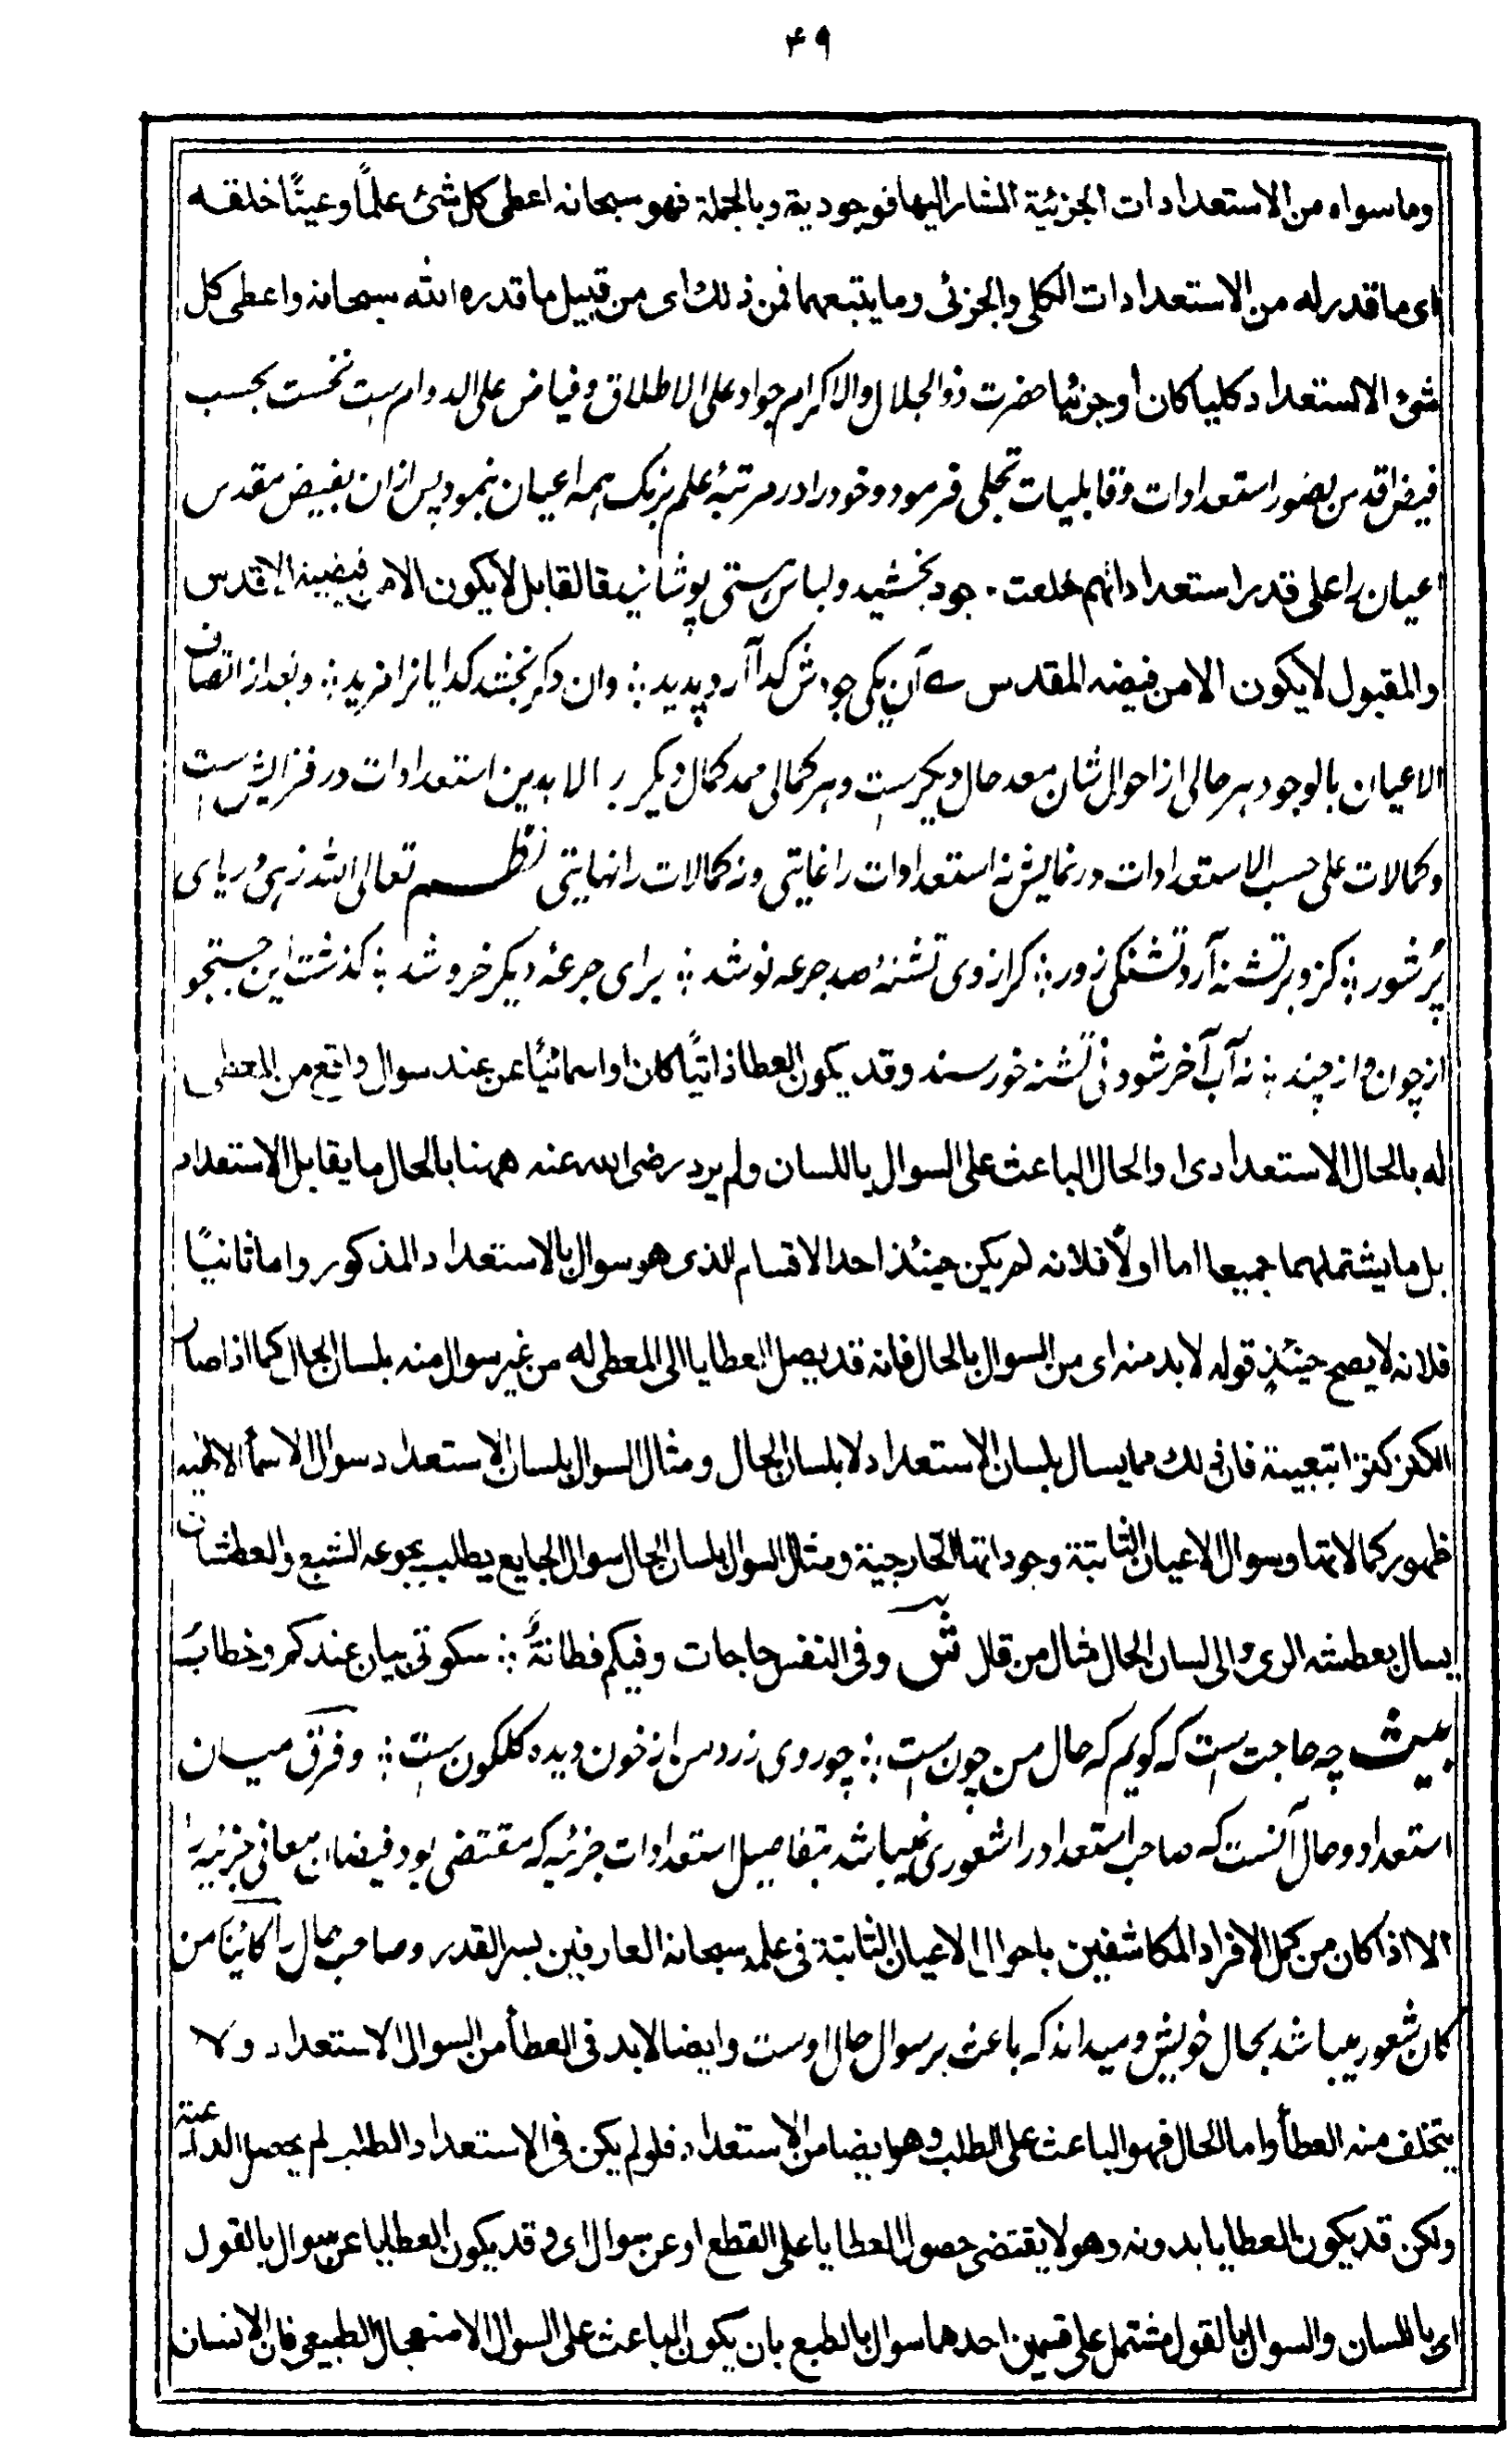 ۴۹
وما سواه من الاستعدادات الجزئية المشار اليها فوجودية وبالجملة فهو سبحانه اعطى كل شئ علمًا وعينًا خلقه
اى ما قدر له من الاستعدادات الكلى والجزئى وما يتبعهما فمن ذلك اى من قبيل ما قدره الله سبحانه واعطى كل
شئ الاستعداد كليا كان أو جزئيا حضرت ذو الجلال والاكرام جواد على الاطلاق وفياض على الدوام ست نخست بحسب
فيض اقدس بصور استعدادات وقابليات تجلى فرمود و خود را در مرتبۀ علم برنگ همه اعيان بنمود پس ازان بفيض مقدس
اعيان را على قدر استعداداتهم خلعت وجود بخشيد و لباس هستى پوشانيد فالقابل لا يكون الا من فيضه الاقدس
والمقبول لا يكون الا من فيضه المقدس ے آن يكى جودش گدا آرد پديد ؛ وان دگر بخشد گدايانرا مزيد ؛ وبعد از اتصاف
الاعيان بالوجود هر حالى از احوال شان معد حال ديگرست و هر كمالى ممد كمال ديگر الا بدين استعدادات در فزايش ست
وكمالات على حسب الاستعدادات در نمايش نه استعدادات را غايتى ونه كمالات را نهايتى نظـــم تعالى الله زهى درياى
پُر شور ؛ كزو بر تشنه آرد تشنگى زور ؛ گر ازوى تشنۀ صد جرعه نوشد ؛ براى جرعۀ ديگر خروشد ؛ گذشت اين جستجو
از چون و از چند ؛ نه آب آخر شود نى تشنه خورسند وقد يكون العطا ذاتيًا كان او اسمائيًا عن عند سوال واقع من المعطى
له بالحال الاستعدادى او الحال الباعث على السوال باللسان ولم يرد رضى الله عنه ههنا بالحال ما يقابل الاستعداد
بل ما يشتملهما جميعا اما اولًا فلانه لم يكن حينئذ احد الاقسام الذى هو سوال بالاستعداد المذكور واما ثانيًا
فلانه لا يصح حينئذٍ قوله لا بد منه اى من السوال بالحال فانه قد يصل العطايا الى المعطى له من غير سوال منه بلسان الحال كما اذا صار
الكنز كنزا بتعينه فان ذلك مما يسال بلسان الاستعداد لا بلسان الحال ومثال السوال بلسان الاستعداد سوال الاسمأ الالٰهيه
ظهور كمالاتها وسوال الاعيان الثابتة وجوداتها الخارجية ومثال السوال بلسان الحال سوال الجايع يطلب بجوعه الشبع والعطشان
يسال بعطشه الرى والى لسان الحال مثال من قال شــ وفى النفس حاجات وفيكم فطانةٌ ؛ سكوتى بيان عندكم وخطاب
بيت چه حاجت ست كه گويم كه حال من چون ست ؛ چو روى زرد من از خون ديده گلگون ست ؛ و فرق ميان
استعداد و حال آنست كه صاحب استعداد را شعورى نميباشد بتفاصيل استعدادات جزئيه كه مقتضى بود فيضان معانى جزئيه را
الا اذا كان من كمل الافراد المكاشفين باحوال الاعيان الثابتة فى علمه سبحانه العارفين بسر القدر وصاحب حال را كائنًا من
كان شعور ميباشد بحال خويش و ميداند كه باعث بر سوال حال اوست وايضا لا بد فى العطأ من السوال الاستعداد ولا
يتخلف منه العطأ واما الحال فهو الباعث على الطلب وهو ايضا من الاستعداد فلو لم يكن فى الاستعداد الطلب لم يحصل الداعية
ولكن قد يكون العطايا بدونه وهو لا يقتضى حصول العطايا على القطع او عن سوال اى وقد يكون العطايا عن سوال بالقول
اى باللسان والسوال بالقول مشتمل على قسمين احدهما سوال بالطبع بان يكون الباعث على السوال الاستعجال الطبيعى فان الانسان